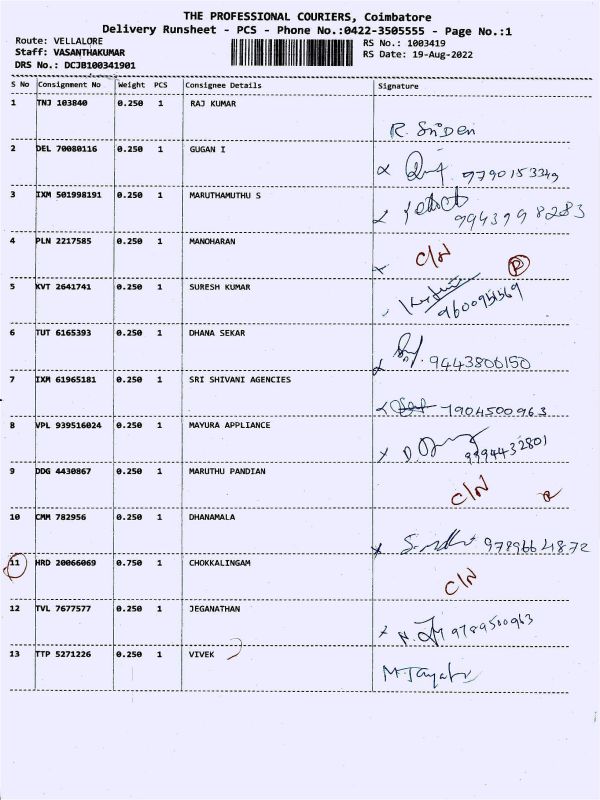 THE PROFESSIONAL COURIERS, Coimbatore
Delivery Runsheet - PCS - Phone No.:0422-3505555 - Page No.:1
Route: VELLALORE
RS No.: 1003419
Staff: VASANTHAKUMAR
RS Date: 19-Aug-2022
DRS No.: DCJB100341901
S No Consignment No Weight PCS Consignee Details Signature
1 TNJ 103840 0.250 1 RAJ KUMAR
R. Sriden
2 DEL 70080116 0.250 1 GUGAN I
9790153349
3 IXM 501998191 0.250 1 MARUTHAMUTHU S
9943998283
4 PLN 2217585 0.250 1 MANOHARAN
C/N R
5 KVT 2641741 0.250 1 SURESH KUMAR
6 TUT 6165393 0.250 1 DHANA SEKAR
9443806150
7 IXM 61965181 0.250 1 SRI SHIVANI AGENCIES
7904500963
8 VPL 939516024 0.250 1 MAYURA APPLIANCE
9994432801
9 DDG 4430867 0.250 1 MARUTHU PANDIAN
C/N R
10 CMM 782956 0.250 1 DHANAMALA
9789664872
11 HRD 20066069 0.750 1 CHOKKALINGAM
C/N
12 TVL 7677577 0.250 1 JEGANATHAN
9789500963
13 TTP 5271226 0.250 1 VIVEK